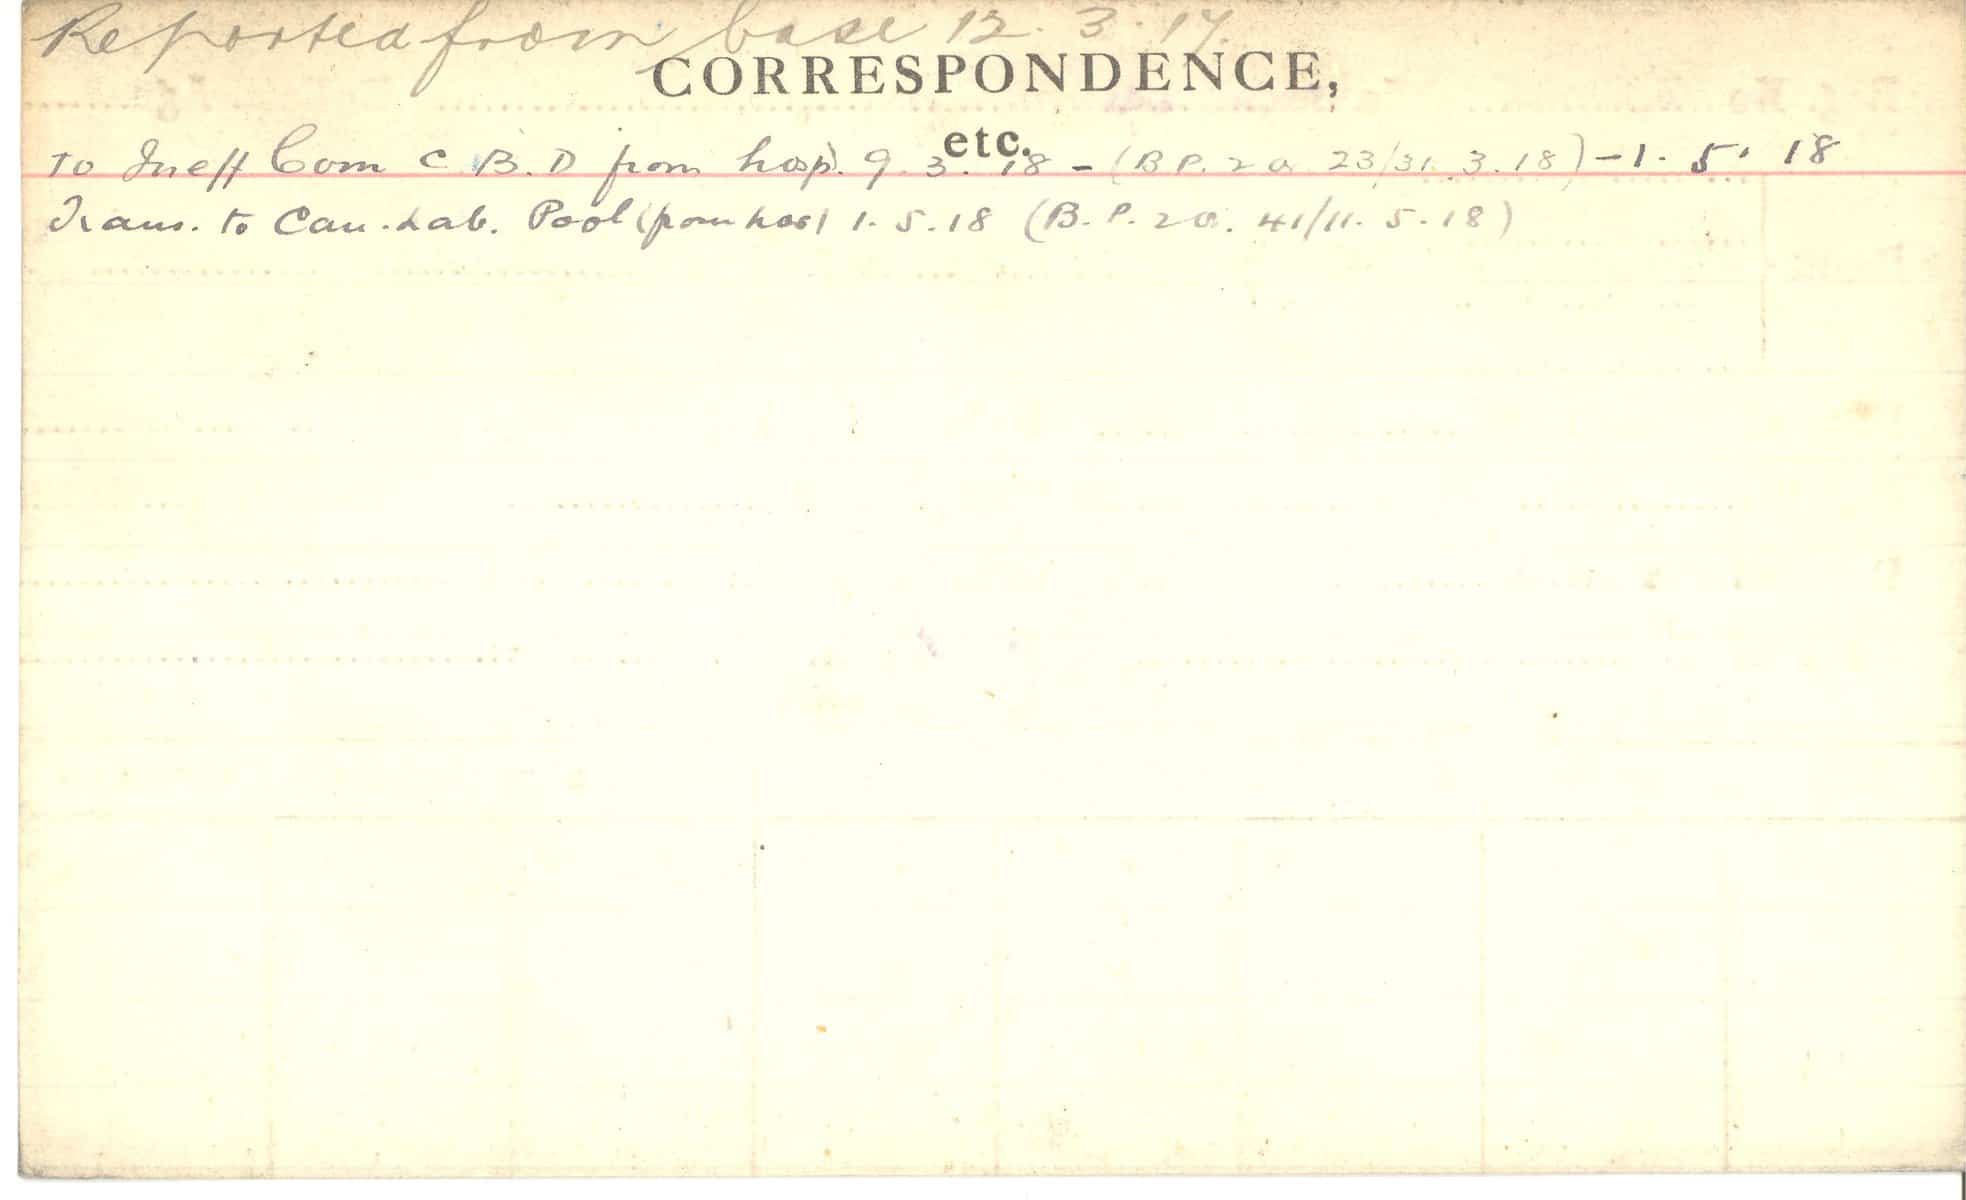 Reported from base 12.3.17.
CORRESPONDENCE,
etc.
To Ineff Com C.B.D from hosp. 9.3.18 - (B P. 2a 23/31.3.18) - 1.5.18
Trans. to Can. Lab. Pool (from hos) 1.5.18 (B.P. 2a. 41/11.5.18)